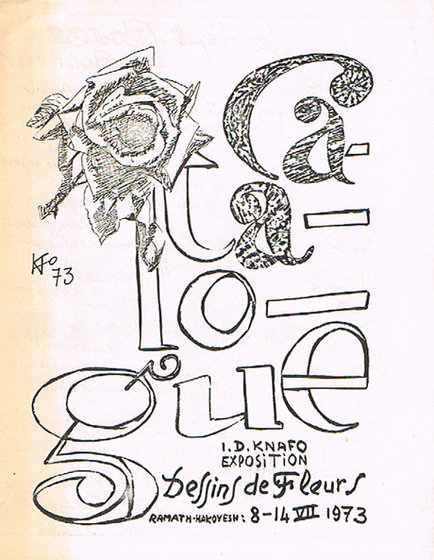 Ca-
ta-
lo-
gue
KFo
73
I.D. KNAFO
EXPOSITION
Dessins de Fleurs
RAMATH-HAKOVESH: 8-14 VII 1973